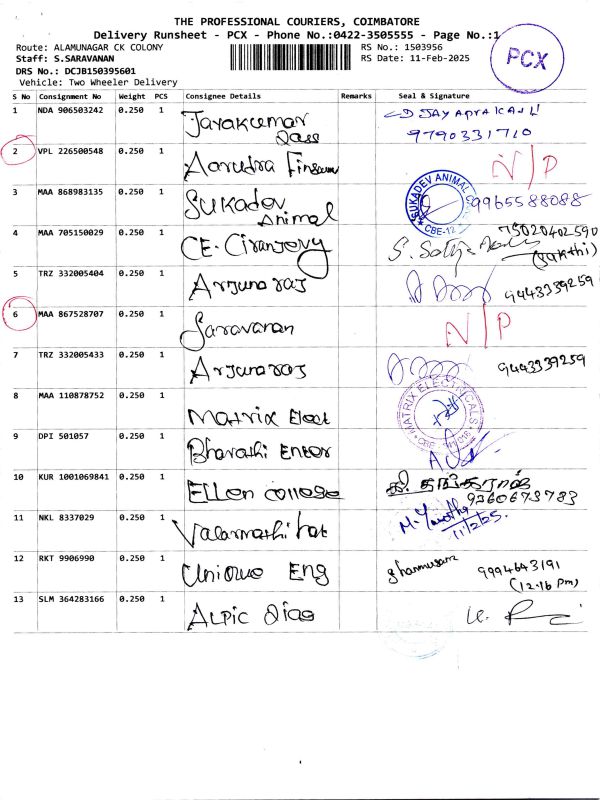 THE PROFESSIONAL COURIERS, COIMBATORE
Delivery Runsheet - PCX - Phone No.:0422-3505555 - Page No.:1
Route: ALAMUNAGAR CK COLONY RS No.: 1503956
Staff: S.SARAVANAN RS Date: 11-Feb-2025
DRS No.: DCJB150395601
Vehicle: Two Wheeler Delivery
PCX
S No Consignment No Weight PCS Consignee Details Remarks Seal & Signature
1 NDA 906503242 0.250 1 Jayakumar JAYAPRAKASH
Dass 9790331710
2 VPL 226500548 0.250 1 Aarudra Finserv N/P
3 MAA 868983135 0.250 1 SUKADEV SUKADEV ANIMAL 9965588088
Animal CBE-12
4 MAA 705150029 0.250 1 CE. 75020402590
(Sakthi)
5 TRZ 332005404 0.250 1 Arjuna raj 9443339259
6 MAA 867528707 0.250 1 Saravanan N/P
7 TRZ 332005433 0.250 1 Arjuna raj 9443339259
8 MAA 110878752 0.250 1 Matrix Elect MATRIX ELECTRICALS
9 DPI 501057 0.250 1 Bharathi Enter
10 KUR 1001069841 0.250 1 Ellen college
9360673783
11 NKL 8337029 0.250 1 Valarmathi
11/2/25.
12 RKT 9906990 0.250 1 Unique Eng 9994643191
(12.16 Pm)
13 SLM 364283166 0.250 1 ALPIC